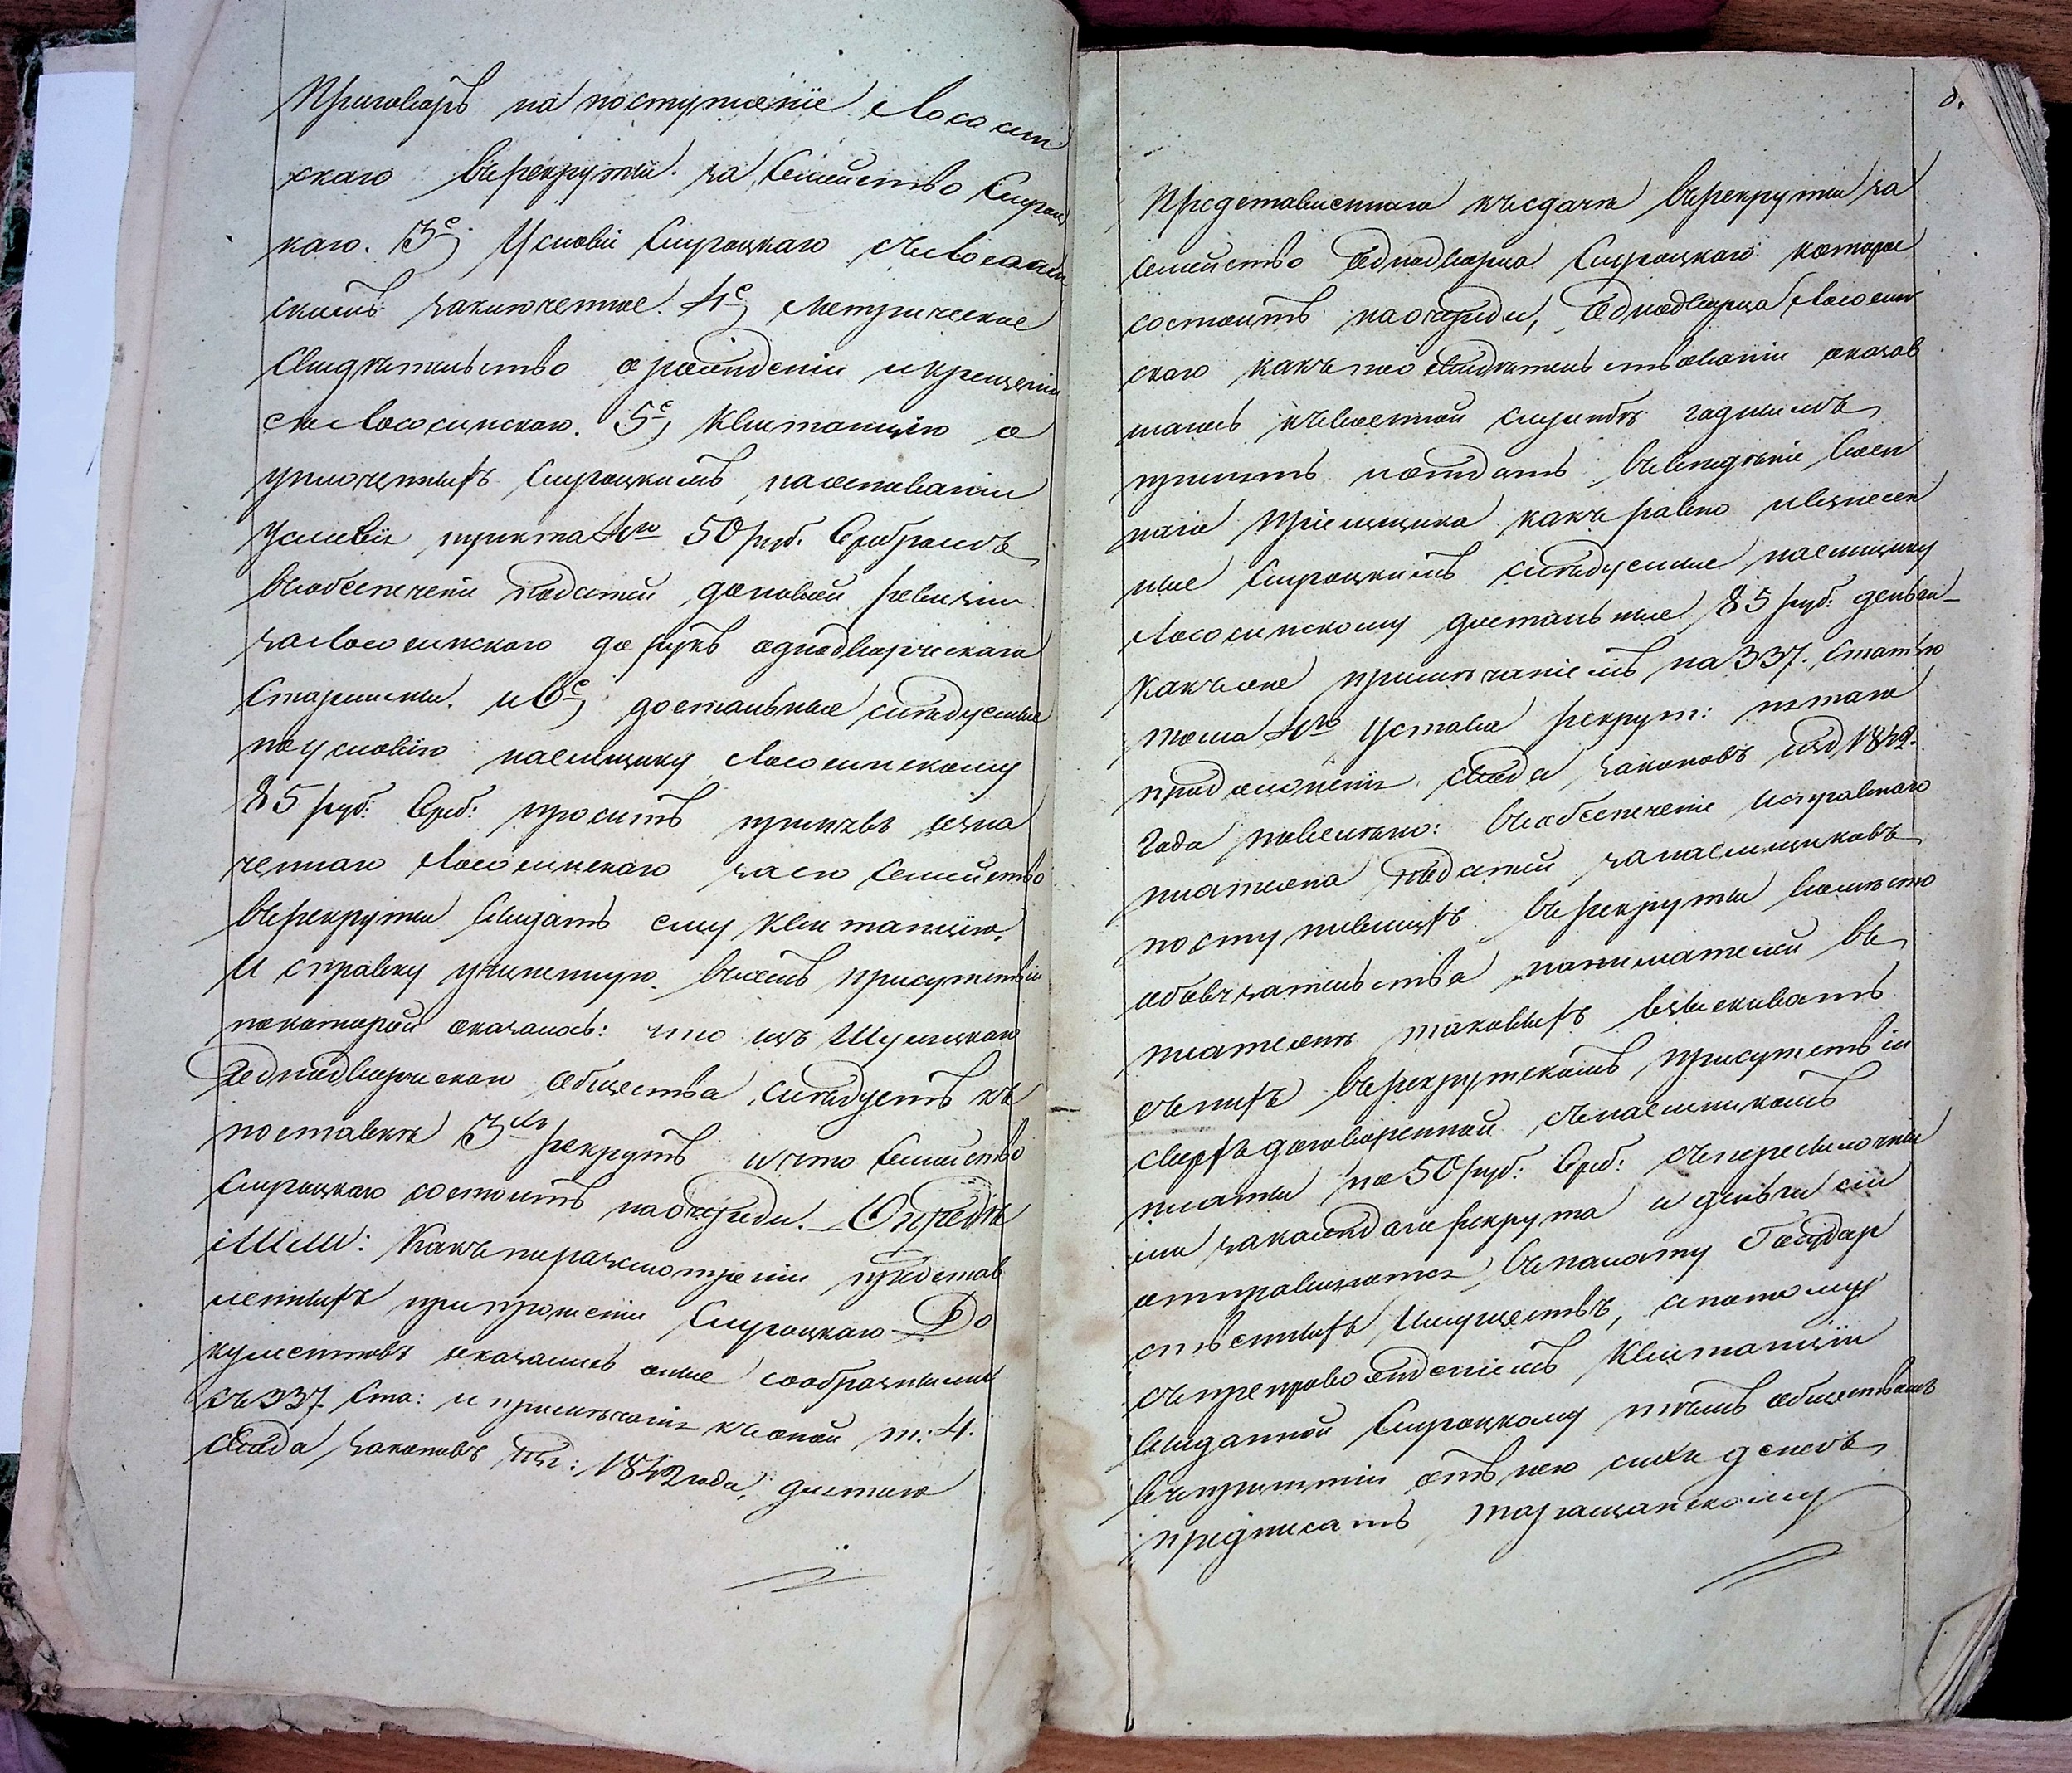 Приговоръ на поступленіе Лососин
скаго въ рекруты за Семейство Сироц
каго. 3е, Условіе Сироцкаго съ Лососин
скимъ заключенное. 4е, Метрическое
Свидѣтельство о рожденіи и крещеніи
Лососинскаго. 5е, Квитанцію о
уплоченныхъ Сироцкимъ на основаніи
Условія пункта 4го 50 руб. Сребромъ
въ обезпеченіе податей до новой ревизіи
за Лососинскаго до рукъ однодворческаго
Старшины. и 6е, достальные слѣдуемые
по условію наемщику Лососинскому
85 руб: Среб: проситъ принявъ озна
ченнаго Лососинскаго за его Семейство
въ рекруты выдать ему Квитанцію.
И справку учиненную въ семъ присутствіи
по которой оказалось: что изъ
Однодворческаго общества слѣдуетъ къ
поставкѣ 3хъ рекрутъ и что Семейство
Сироцкаго состоитъ на очереди. Опредѣ
лили: Какъ по разсмотреніи представ
ленныхъ при прошеніи Сироцкаго До
кументовъ оказались оные сообразными
съ 337 Ста: и примѣчанія къ оной т: 4.
Свода законовъ изд: 1842 года,
8.
Представленнаго къ сдачѣ въ рекруты за
семейство Однодворца Сироцкаго которое
состоитъ на очереди, Однодворца Лососин
скаго какъ по свидѣтельствованіи оказав
шагось къ военной службѣ годнымъ
принять и отдать въ вѣдѣніе Воен
наго Пріемщика какъ равно и взнесен
ные Сироцкимъ слѣдуемые наемщику
Лососинскому достальные 85 руб: деньги
Какъ же примѣчаніемъ на 337. Статью
тома 4го Устава рекрут: пятаго
продолженія Свода законовъ изд. 1842.
Года повелѣно: въ обезпеченіе исправнаго
платежа податей за наемщиковъ
поступившихъ въ рекруты вмѣсто
обязательства нанимателей въ
платежѣ таковыхъ взыскивать
съ нихъ въ рекрутскомъ присутствіи
сверхъ договоренной съ наемщикомъ
платы по 50 руб: Среб: съ
за каждаго рекрута и деньги сіи
отправлять въ палату Государ
ственныхъ Имуществъ, а потому
съ препровожденіемъ Квитанціи
выданной Сироцкому тѣмъ обществомъ
въ принятіи отъ него сихъ денегъ
предписать Таращанскому